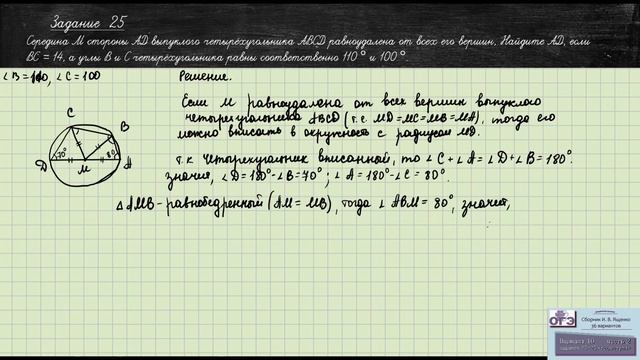 Задание 25
Середина M стороны AD выпуклого четырёхугольника ABCD равноудалена от всех его вершин. Найдите AD, если
BC = 14, а углы B и C четырёхугольника равны соответственно 110° и 100°.
∠B = 110, ∠C = 100
Решение.
Если M равноудалена от всех вершин выпуклого
четырехугольника ABCD (т.е. MD=MC=MB=MA), тогда его
можно вписать в окружность с радиусом MD.
т.к. Четырехугольник вписанный, то ∠C + ∠A = ∠D + ∠B = 180°.
значит, ∠D = 180° - ∠B = 70° ; ∠A = 180° - ∠C = 80°.
△AMB - равнобедренный (AM = MB), тогда ∠ABM = 80°, значит,
C
B
D
70°
80°
A
M
ОГЭ
Сборник И. В. Ященко
36 вариантов
Вариант 10 часть 2